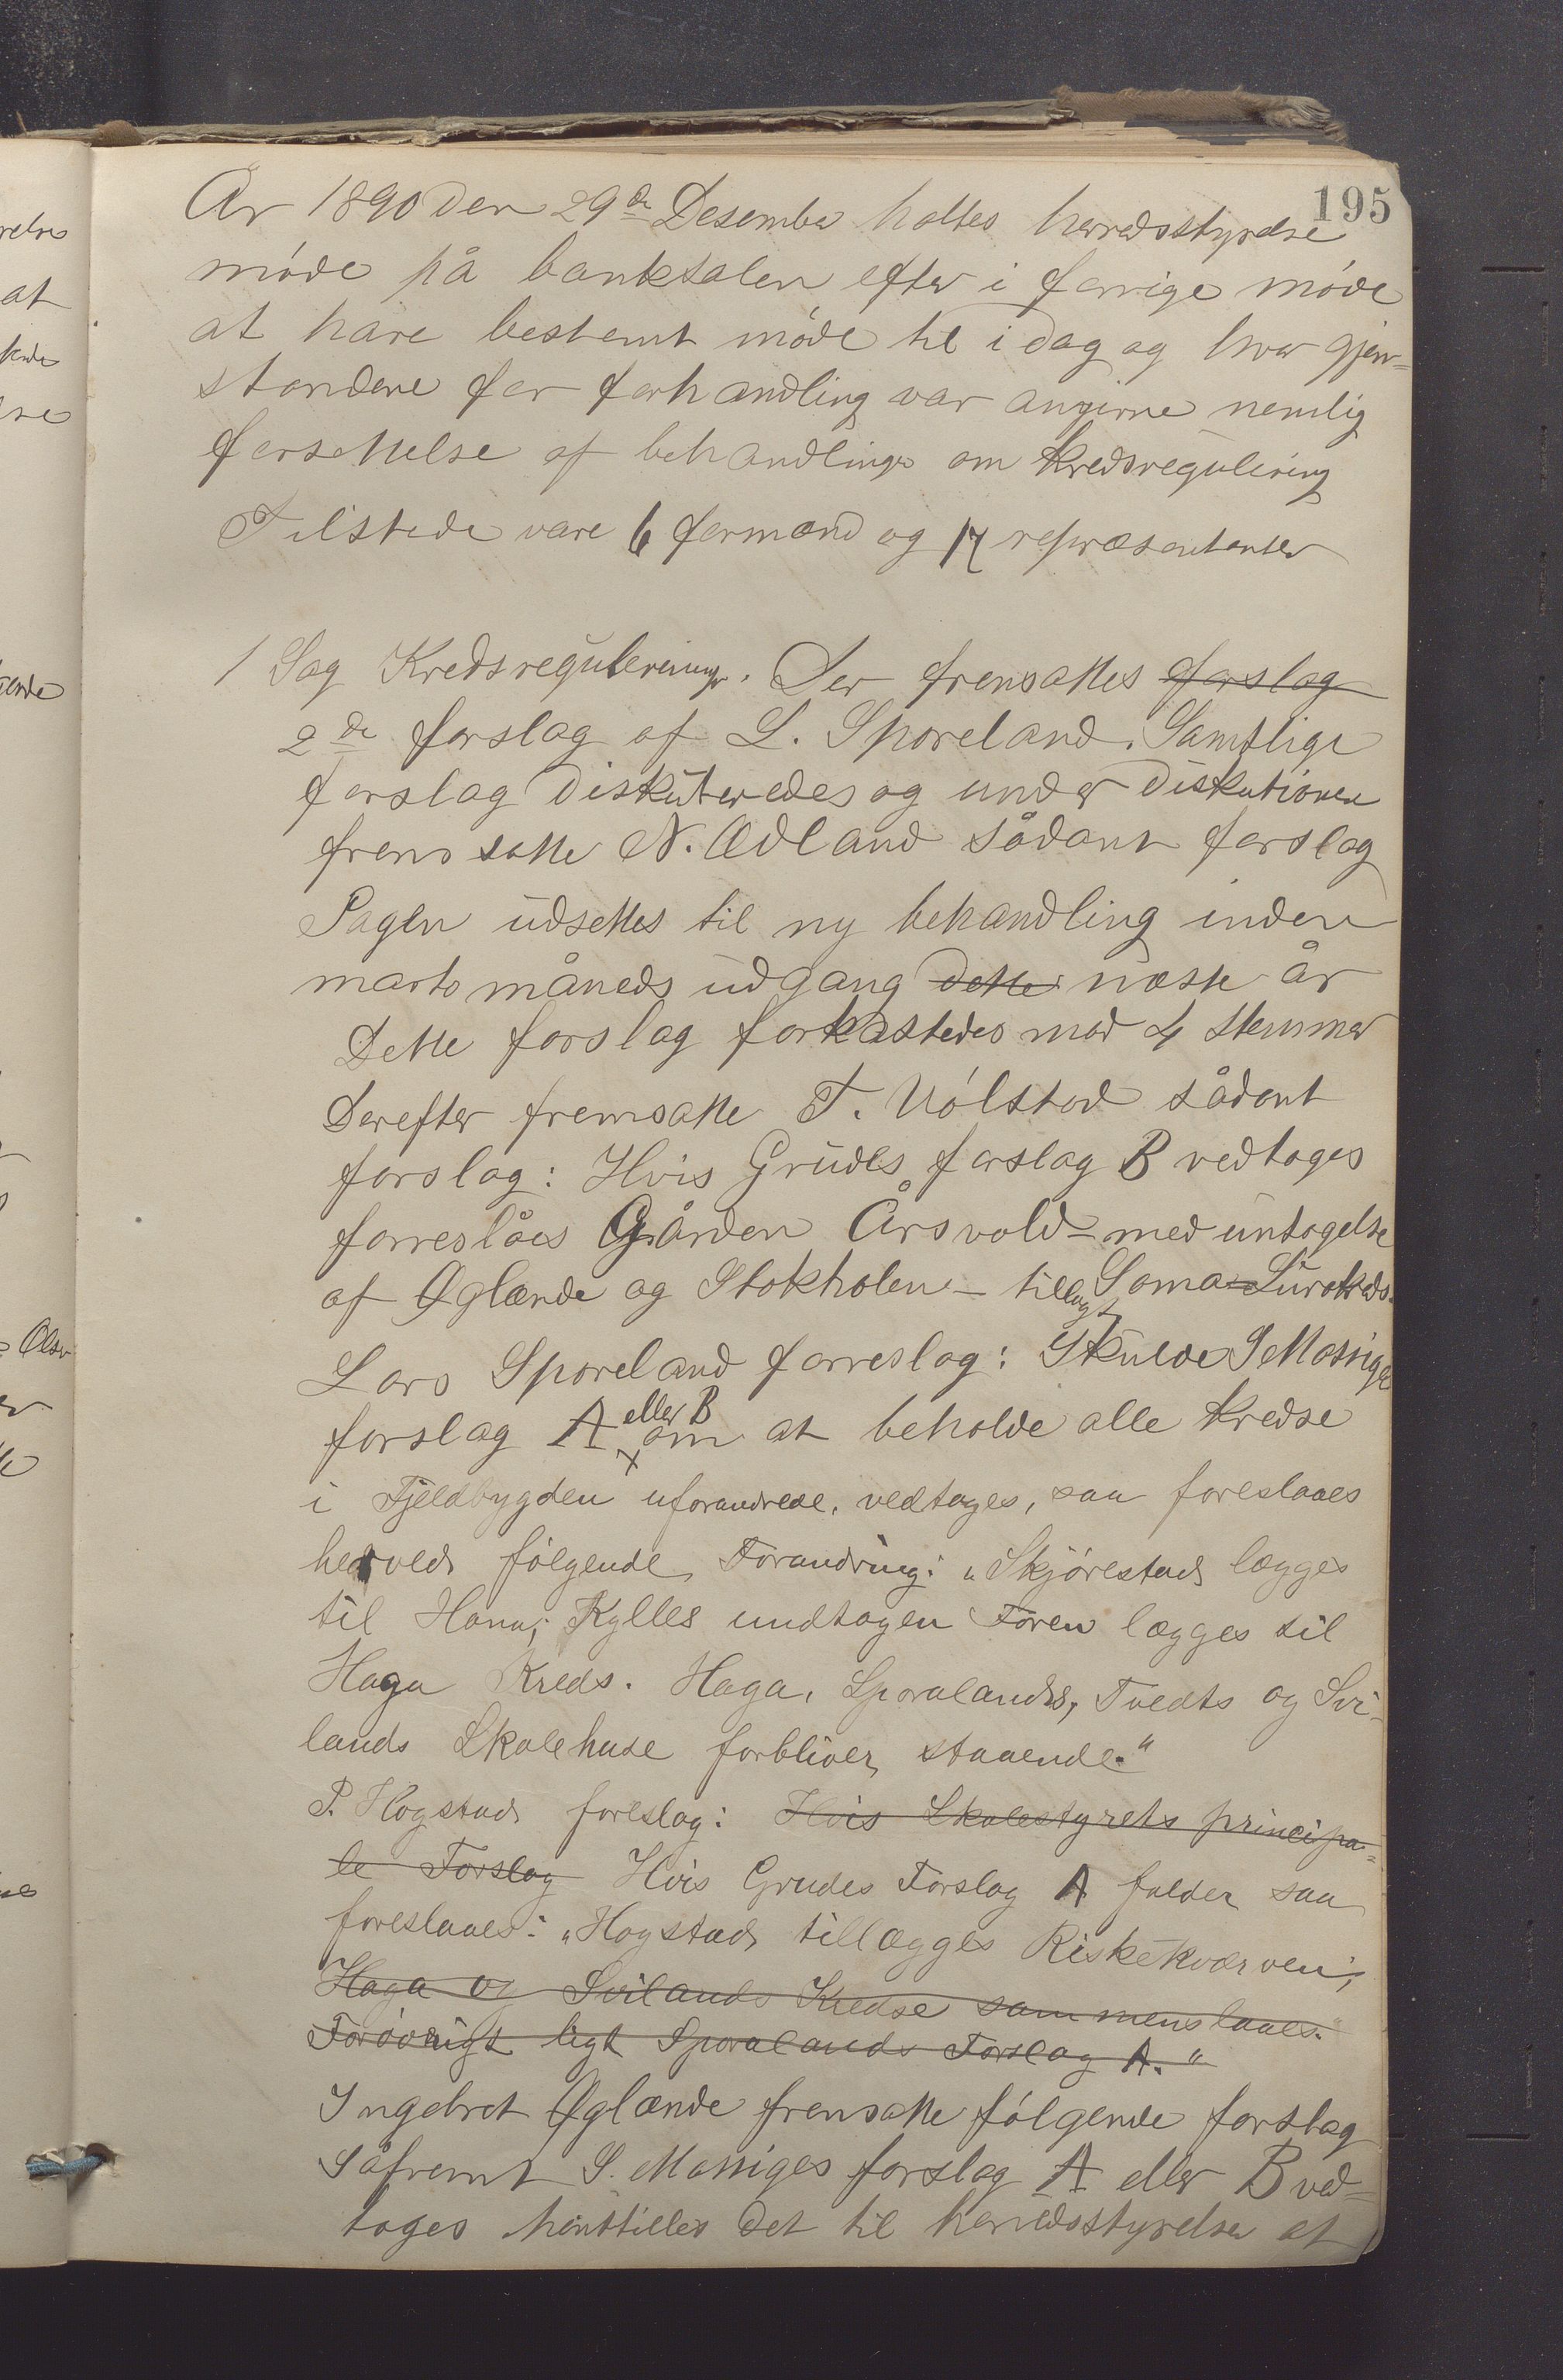 195
År 1890 den 29de Desember holtes herredsstyrelse
møde på banksalen efter i forrige møde
at have bestemt møde til i dag og hvor gjen-
standene for forhandling var angivne nemlig
forsettelse af behandlingen om kredsregulering
Tilstede vare 6 formænd og 17 repræsentanter
1 Sag Kredsreguleringen. Der fremsattes forslag
2de forslag af L. Sporeland. Samtlige
forslag diskuteredes og under diskutionen
fremsatte N. Ædland sådant forslag
Sagen udsettes til ny behandling inden
marts måneds udgang dette næste år
Dette forslag forkastedes mod 4 stemmer
Derefter fremsatte T. Vølstad sådant
forslag: Hvis Grudes forslag B vedtages
forreslåes Gården Årsvold - med untagelse
af Øglænde og Stokholen - tillagt Soma Lura kreds.
Lars Sporeland forreslog: Skulde S Mossiges
forslag A eller B om at beholde alle kredse
i Fjeldbygden uforandrede, vedtages, saa foreslaaes
herved følgende Forandring: "Skjørestad lægges
til Hana; Kylles undtagen Foren lægges til
Haga Kreds. Haga, Sporalands, Tvedts og Svi-
lands Skolehuse forbliver staaende."
P. Hogstad foreslog: Hvis Skolestyrets principa-
le Forslag Hvis Grudes Forslag A falder saa
foreslaaes: "Hogstad tillægges Riskekværven;
Haga og Svilands Kredse sammenslaaes."
Forøvrigt ligt Sporalands Forslag A."
Ingebret Øglænde fremsatte følgende forslag
Såfremt S. Mossiges forslag A eller B ved-
tages henstilles det til herredsstyrelsen at